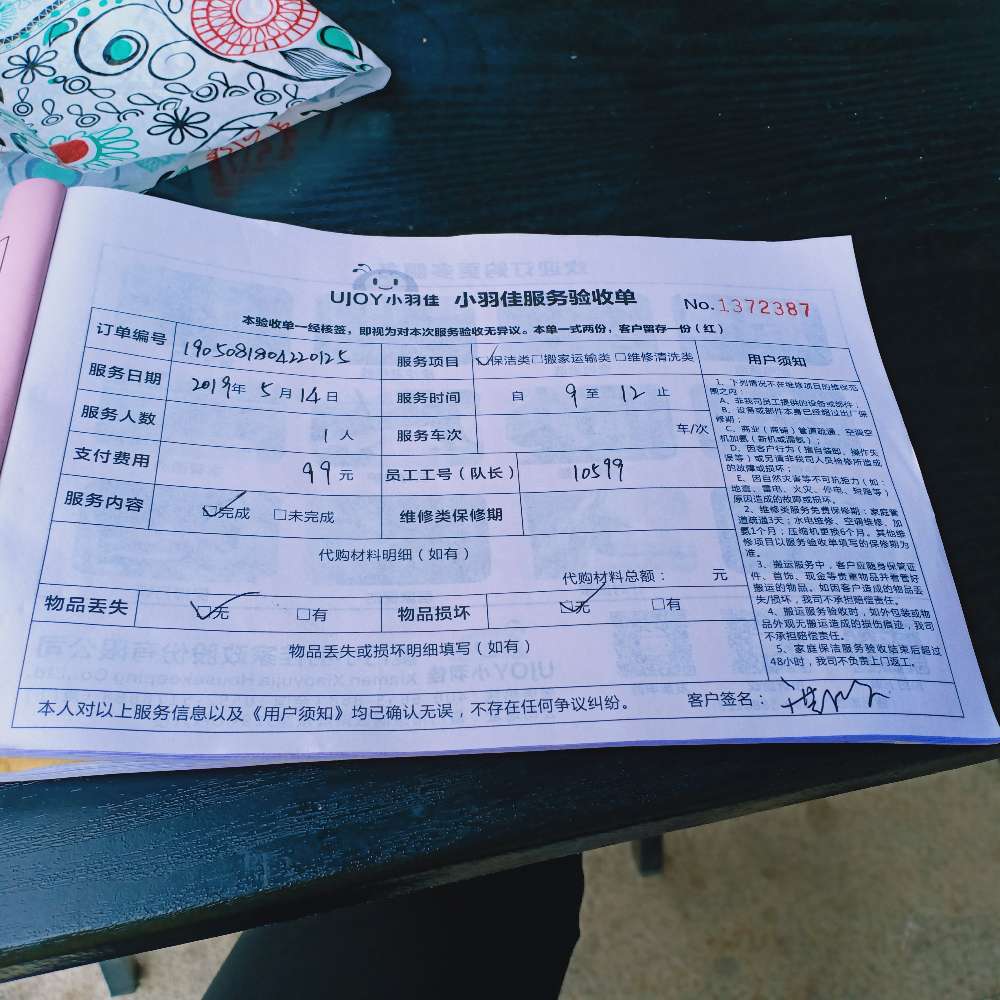 UJOY小羽佳 小羽佳服务验收单
No.1372387
本验收单一经核签，即视为对本次服务验收无异议。本单一式两份，客户留存一份（红）
订单编号 1905081804220125 服务项目 ☑保洁类□搬家运输类□维修清洗类
服务日期 2019年 5月14日 服务时间 自 9 至 12 止
服务人数 1人 服务车次 车/次
支付费用 99元 员工工号（队长） 10599
服务内容 ☑完成 □未完成 维修类保修期
代购材料明细（如有）
代购材料总额： 元
物品丢失 ☑无 □有 物品损坏 ☑无 □有
物品丢失或损坏明细填写（如有）
用户须知
1、下列情况不在维修项目的维修范
围之内：
A、非我司员工提供的设备或部件；
B、设备或部件本身已经超过出厂保
修期；
C、商业（商铺）管道疏通、空调空
机加氨（新机或漏氨）；
D、因客户行为（擅自装卸、操作失
误等）或另请非我司人员检修所造成
的故障或损坏；
E、因自然灾害等不可抗拒力（如：
地震、雷电、火灾、停电、短路等）
原因造成的故障或损坏。
2、维修类服务免费保修期：家庭管
道疏通3天；水电维修、空调维修、加
氨1个月；压缩机更换6个月。其他维
修项目以服务验收单填写的保修期为
准。
3、搬运服务中，客户应随身保管证
件、首饰、现金等贵重物品并看管好
搬运的物品。如因客户造成的物品丢
失/损坏，我司不承担赔偿责任。
4、搬运服务验收时，如外包装或物
品外观无搬运造成的损伤痕迹，我司
不承担赔偿责任。
5、家庭保洁服务验收结束后超过
48小时，我司不负责上门返工。
本人对以上服务信息以及《用户须知》均已确认无误，不存在任何争议纠纷。 客户签名：